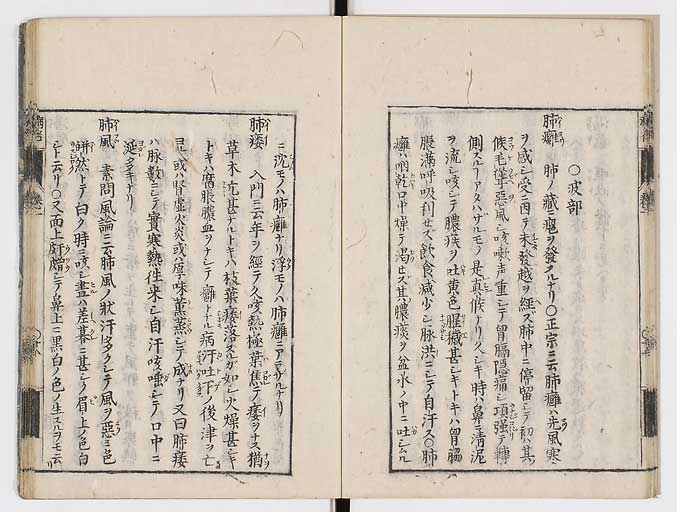 ○波部
肺癰 肺ノ臟ニ癰ヲ發スルナリ○正宗ニ云肺癰ハ先風寒
ヲ感シ受ニ因テ未發越ヲ經ズ肺中ニ停留シテ初ハ其
候毛聳惡風シ咳嗽声重シテ胷膈隱痛シ項強テ轉
側スルーアタハザルモノ是真候ナリ久シキ時ハ鼻ニ清泥
ヲ流シ咳シテ膿痰ヲ吐黄色腥穢甚シキトキハ胷脇
脹満呼吸利セズ飲食減少シ脉洪ニシテ自汗ス○肺
癰ハ咽乾口中燥テ渇セズ其膿痰ヲ盆水ノ中ニ吐シムル
ニ沉モノハ肺癰ナリ浮モノハ肺癰ニアラザルナリ
肺痿 入門ニ云年ヲ經テ久咳熱極葉焦テ痿ヲナス猶
草木亢甚ナルトキハ枝葉痿落スルガ如シ火燥甚シキ
トキハ腐脹膿血ヲナシテ癰トナル病汗吐下ノ後津ヲ亡
或ハ腎虚火炎或ハ厚味薫蒸シテ成ナリ又曰肺痿
ハ脉數ニシテ實寒熱往来シ自汗咳唾シテ口中ニ
涎多キナリ
肺風 素問風論ニ云肺風ノ狀汗多クシテ風ヲ惡ミ色
皏然トシテ白ク時ニ咳シ晝ハ差暮ニ甚シク眉上ノ色白
シト云リ○又面上シテ鼻上ニ黒白ノ色ノ生スルヲモ云
リ